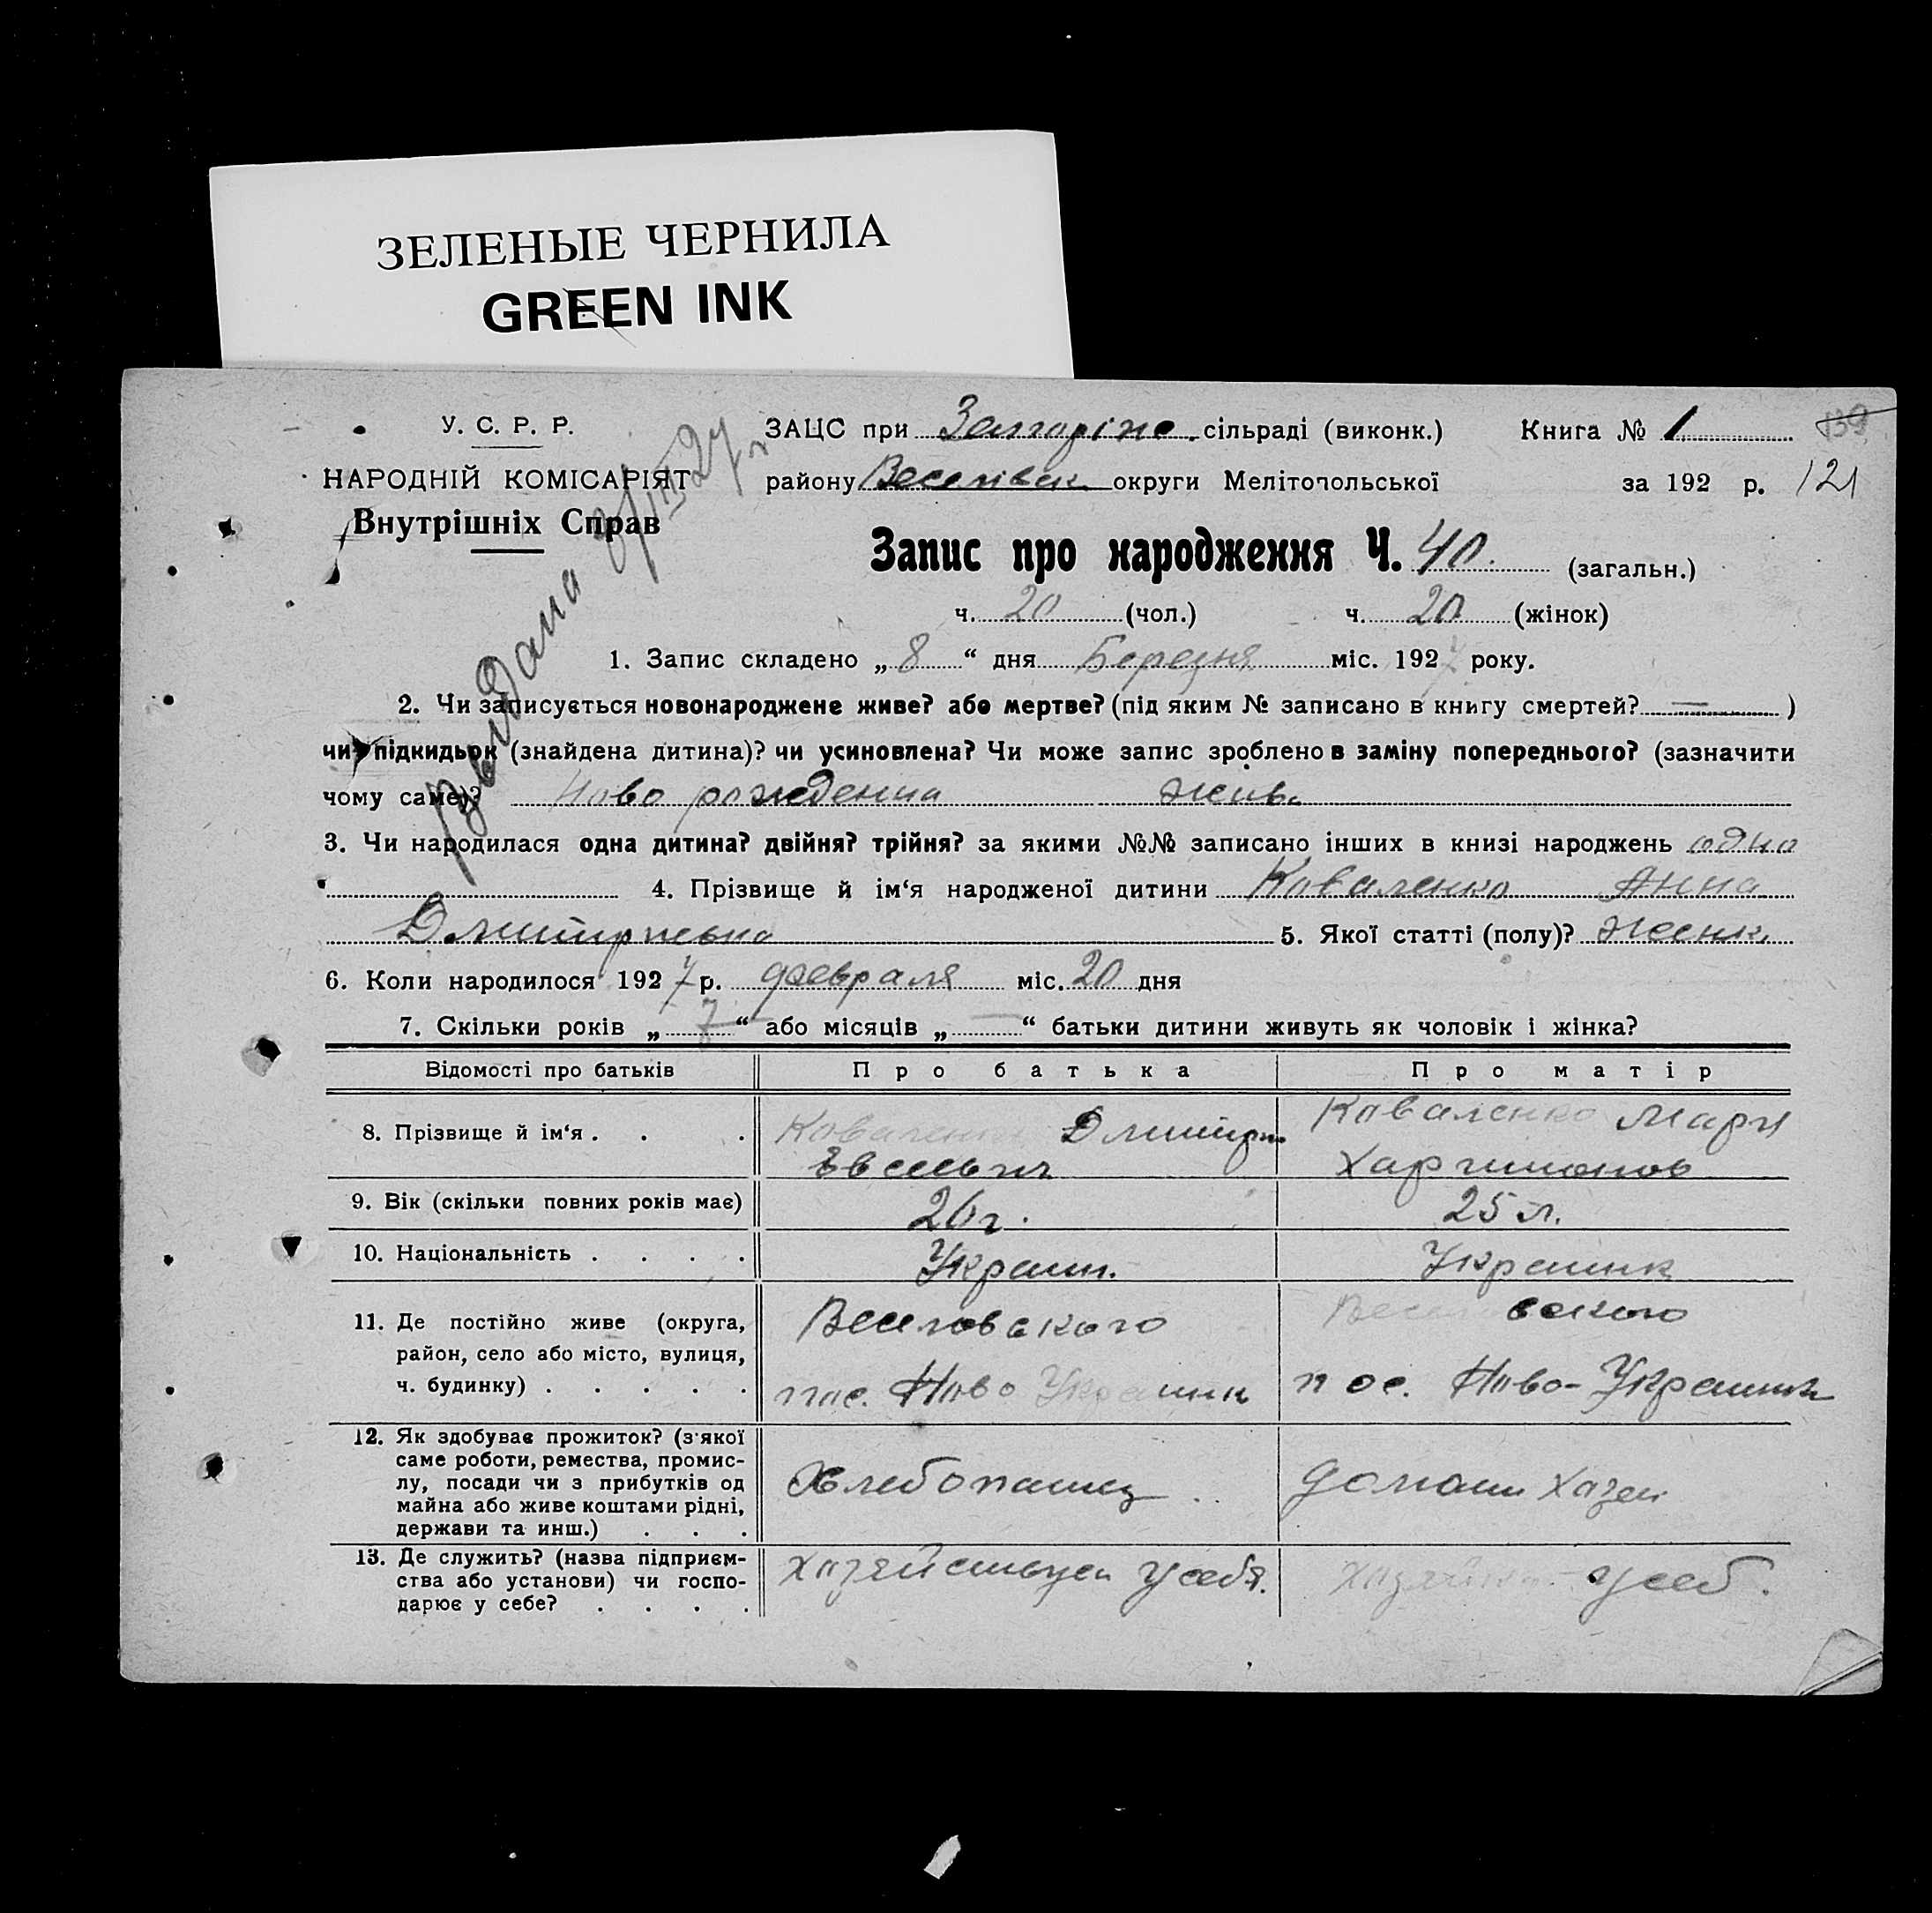 ЗЕЛЕНЫЕ ЧЕРНИЛА
GREEN INK
У. С. Р. Р.
НАРОДНІЙ КОМІСАРІЯТ
Внутрішніх Справ
Выдана 8/III 27 г
ЗАЦС при сільраді (виконк.) Книга № 1 139
району Веселівськ округи Мелітопольської за 192 р. 121
Запис про народження Ч. 40. (загальн.)
ч. 20 (чол.) ч. 20 (жінок)
1. Запис складено „ 8 “ дня Березня міс. 1927 року.
2. Чи записується новонароджене живе? або мертве? (під яким № записано в книгу смертей? — )
чи підкидьок (знайдена дитина)? чи усиновлена? Чи може запис зроблено в заміну попереднього? (зазначити
чому саме)? Ново рожденна жива
3. Чи народилася одна дитина? двійня? трійня? за якими №№ записано інших в книзі народжень одна
4. Прізвище й ім‘я народженої дитини Коваленко Анна
Дмитрівна 5. Якої статті (полу)? женк.
6. Коли народилося 1927 р. февраля міс. 20 дня
7. Скільки років „ 7 “ або місяців „ — “ батьки дитини живуть як чоловік і жінка?
Відомості про батьків Про батька Про матір
8. Прізвище й ім‘я . . . Коваленко Дмитри Коваленко Мари
9. Вік (скільки повних років має) 26 г. 25 л.
10. Національність . . . . Украин. Украинк
11. Де постійно живе (округа, Веселовского Веселовского
район, село або місто, вулиця,
ч. будинку) . . . . . пос. Ново Украинк пос. Ново-Украинк
12. Як здобуває прожиток? (з‘якої
саме роботи, ремества, промис-
лу, посади чи з прибутків од Хлебопашец домаш хазяй
майна або живе коштами рідні,
держави та инш.) . . .
13. Де служить? (назва підприєм- у себя. у себ.
ства або установи) чи госпо-
дарює у себе? . . . .